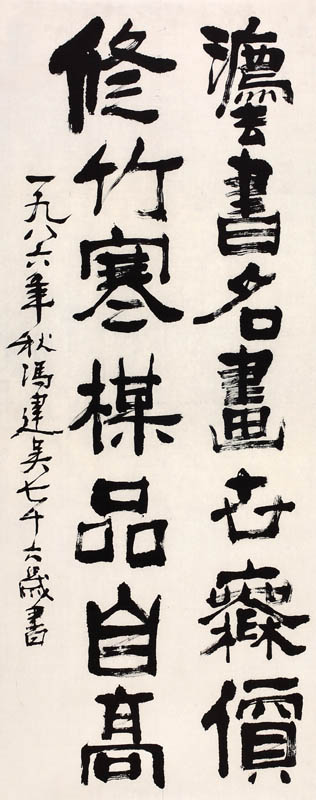 灋書名畫世無價
修竹寒楳品自高
一九八六年秋馮建吳七十六歲書